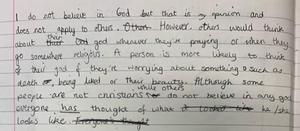 I do not believe in God but that is my opinion and
does not apply to others. Other However, others would think
about their God god whenever they're praying or when they
go somewhere religious. A person is more likely to think
of their god if they're worrying about something such as
death or being liked or their beauty. Although some
people are not christians while others do not believe in any god
everyone has thought of what it looked like he/she
looks like. Everyone's thought